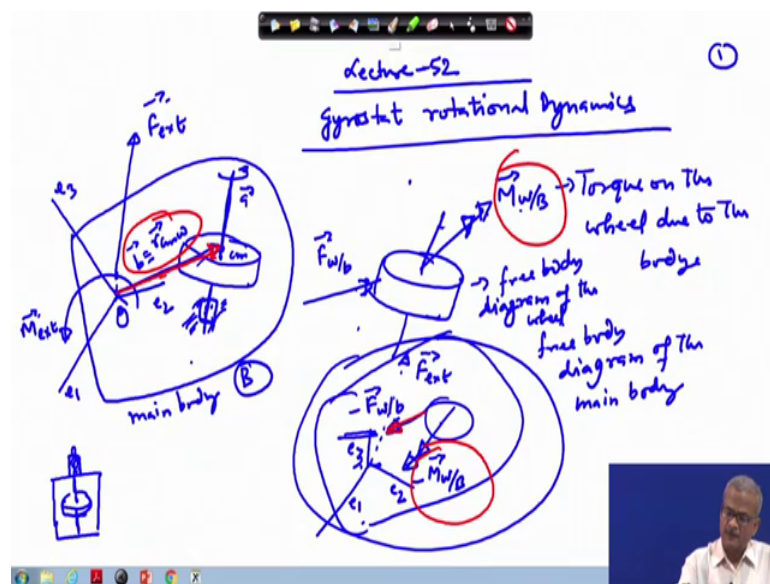 Lecture-52
①
Gyrostat rotational Dynamics
F ext
e3
a
b ≅ r cmw
cm
e2
O
M ext
e1
main body
B
M W/B → Torque on the
wheel due to the
bodye
F W/b
→ free body
diagram of the
wheel
free body
diagram of the
main body
F ext
- F W/b
e3
e2
e1
- M W/B